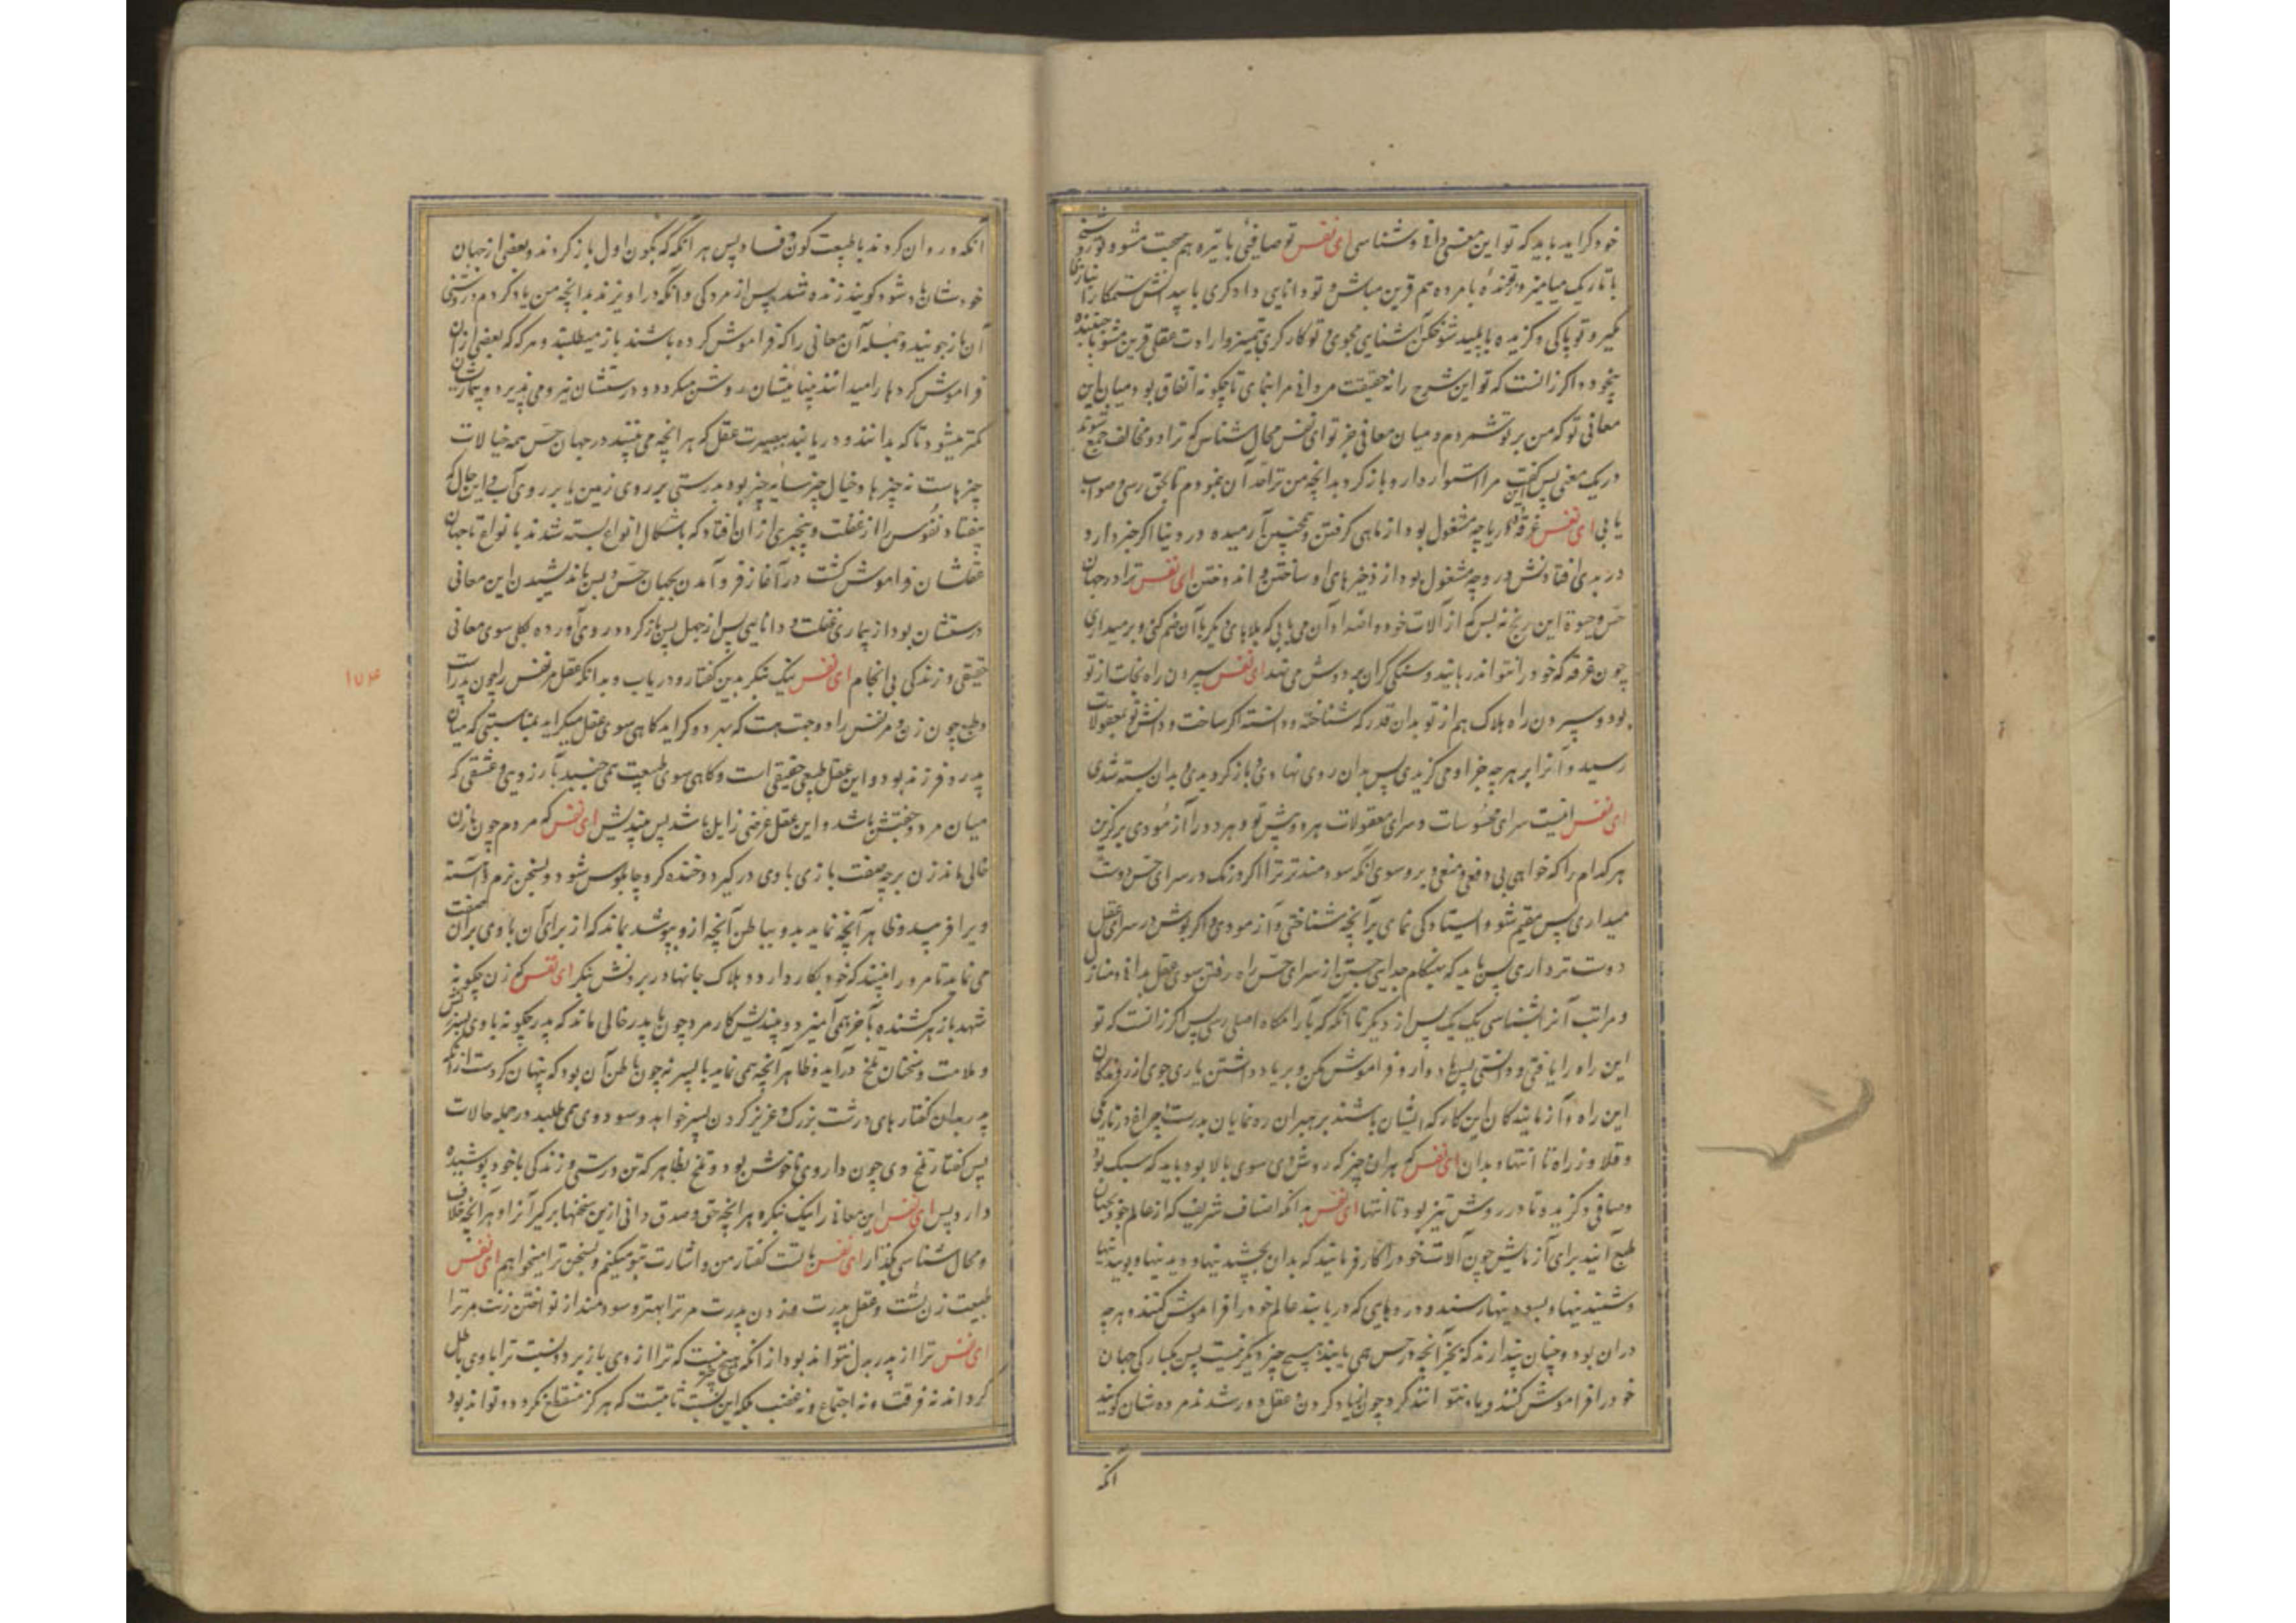 خود گراید باید که تو این معنی دانی و شناسی ای نفس تو صافیی با تیره هم صحبت مشو و تو روشنی
با تاریک میامیز و تو زنده با مرده هم قرین مباش و تو دانایی و دادگری با بیدانش ستمکار انبازی
مگیر و تو پاکی و گزیده با پلید شوخگن آشنایی مجوی و تو کارگری بتمیز و ارادت عقلی قرین مشو با جنبنده
بیخود و اگر زانست که تو این شرح را نه حقیقت میدانی مرا بنمای تا چگونه اتفاق بود میان این
معانی تو که من بر تو شمردم و میان معانی جز تو ای نفس محال شناس که ترا دو مخالف جمع شوند
در یک معنی پس این گفت مرا استوار دار و باز گرد بدانچه من ترا بدان نمودم تا بحق رسی و صواب
یابی ای نفس غرقه در یا چه مشغول بود از ماهی گرفتن و همچنین آرمیده در دنیا اگر خبر دارد
در بدی افتادنش در وی چه مشغول بود از ذخیرهای او ساختن و اندوختن ای نفس ترا در جهان
حس و حیوة این رنج نه بس که از آلات خود و اضداد آن می یابی که بلاهای دیگر با آن ضم کنی و بر میداری
چون غرقه که خود را نتواند رهانید و سنگی گران بر دوش می نهد ای نفس سپردن راه نجات از تو
بود و سپردن راه هلاک هم از تو بدان قدر که شناخته و دانسته اگر ساخت و دانش تو بمعقولات
رسید و آنرا بر هر چه جز او می گزیدی پس بدان روی نهادی و باز گردیدی و بدان بسته شدی
ای نفس اینست سرای محسوسات و سرای معقولات هر دو پیش تو و هر دو را آزمودی برگزین
هر کدام را که خواهی بی دفعی و منعی و برو سوی آنکه سودمندتر ترا اگر درنگ در سرای حس دوست
میداری پس مقیم شو و ایستادگی نمای بر آنچه شناختی و آزمودی و اگر بودش در سرای عقل
دوست تر داری پس باید که بهنگام جدایی جستن از سرای حس راه رفتن سوی عقل بدانی و منازل
و مراتب آنرا بشناسی یک یک پس از دیگر تا آنگه که بآرامگاه اصلی رسی پس اگر زانست که تو
این راه را یافتی و دانستی پس یاد دار و فراموش مکن و بر یاد داشتن یاری جوی از روندگان
این راه و آزمایندگان این کار که ایشان باشند برهبران ره نمایان بدرست چراغ در تاریکی
و قلاوز راه تا انتها و بدان ای نفس که هر آن چیز که روش وی سوی بالا بود باید که سبک بود
و صافی و گزیده تا در روش تیز بود تا انتها ای نفس بدانکه اصناف شریف که از عالم خود بجهان
طبع آیند برای آزمایش چون آلات خود را کار فرمایند که بدان بچشیدنیها و دیدنیها و بوییدنیها
و شنیدنیها و بسودنیها رسند و در وهایی که در یابند عالم خود را فراموش کنند و هر چه
در آن بود و چنان پندارند که بجز آنچه در حس می یابند هیچ چیز دیگر نیست پس یکبارگی جهان
خود را فراموش کنند و یاد نتوانند کرد چون از یاد کردن عقل دور شدند مرده شان گویند
آنگه
آنگه در روان گردند با طبیعت کون و فساد پس هر آنگه که بکون اول باز گردند و بعضی از جهان
خودشان یاد شود گویند زنده شدند پس از مردگی و آنگه در آویزند بدانچه من یاد کردم و روشنی
آن باز جویند و جمله آن معانی را که فراموش کرده باشند باز میطلبند و هر گه که بعضی از آن
فراموش کردها را میدانند بینائیشان روشن میگردد و درستشان نیرو می پذیرد و بیماریشان
کمتر میشود تا که بدانند و دریابند ببصیرت عقل که هر آنچه می بینند در جهان حس همه خیالات
چیزهاست نه چیزها و خیال چیز سایه چیز بود بدرستی بر روی زمین یا بر روی آب و این حال که
بیفتاد نفوس را از غفلت و بیخبری از آن افتاد که باشکال انواع بسته شدند با نواع تا جهان
عقلشان فراموش گشت در آغاز فرو آمدن بجهان حس و پس باندیشیدن این معانی
درستشان بود از بیماری غفلت و دانایی پس از جهل پس باز گردد و روی آورده بکلی سوی معانی
حقیقی و زندگی بی انجام ای نفس نیک بنگر بدین گفتار و دریاب و بدانکه عقل مر نفس را چون پدرست
و طبع چون زن و مر نفس را دو جهت هست که بهر دو گراید گاهی سوی عقل میگراید بمناسبتی که میان
پدر و فرزند بود و این عقل طبعی حقیقی است و گاهی سوی طبیعت همی جنبد بآرزویی و عشقی که
میان مرد و جفتش باشد و این عقل عرضی زایل باشد پس بیندیش ای نفس که مردم چون با زن
خالی ماند زن بر چه صفت بازی با وی در گیرد و خنده گر و چابلوس شود و بسخن نرم و آهسته
ویرا فریبد و ظاهر آنچه نماید بدو بباطن آنچه ازو پوشد بماند که از برای آن با وی بر آن صفت
می نماید تا مر ورا ببیند که خود بکار دارد و بهلاک جانها در بردنش بنگر ای نفس که زن چگونه
شهد با زهر کشنده بآخر همی آمیزد و بیندیش کار مرد چون با پدر خالی ماند که پدر چگونه با وی بسرزنش
و ملامت و سخنان تلخ درآید و ظاهر آنچه همی نماید با پسر نه چون باطن آن بود که پنهان کردست از آنکه
پدر بدان گفتارهای درشت بزرگ و عزیز کردن پسر خواهد و سود وی همی طلبد در جمله حالات
پس گفتار تلخ وی چون داروی ناخوش بود و تلخ بظاهر که تن درستی و زندگی با خود پوشیده
دارد پس ای نفس این معانی را نیک بنگر و هر آنچه حق و صدق دانی ازین سخنها بر گیر آنرا و هر آنچه خلاف
و محال شناسی بگذار ای نفس با تست گفتار من و اشارت بتو میکنم و بسخن ترا میخواهم ای نفس
طبیعت زن تست و عقل پدرت و زدن پدرت مر ترا بهتر و سودمند از نواختن زنت مر ترا
ای نفس ترا از پدر بدل نتواند بود از آنکه هیچ چیز نیست که ترا از وی باز برد و نسبت ترا با وی باطل
گرداند نه فرقت و نه اجتماع و نه غضب بلکه این نسبت ثابتست که هرگز منقطع نگردد و تواند بود